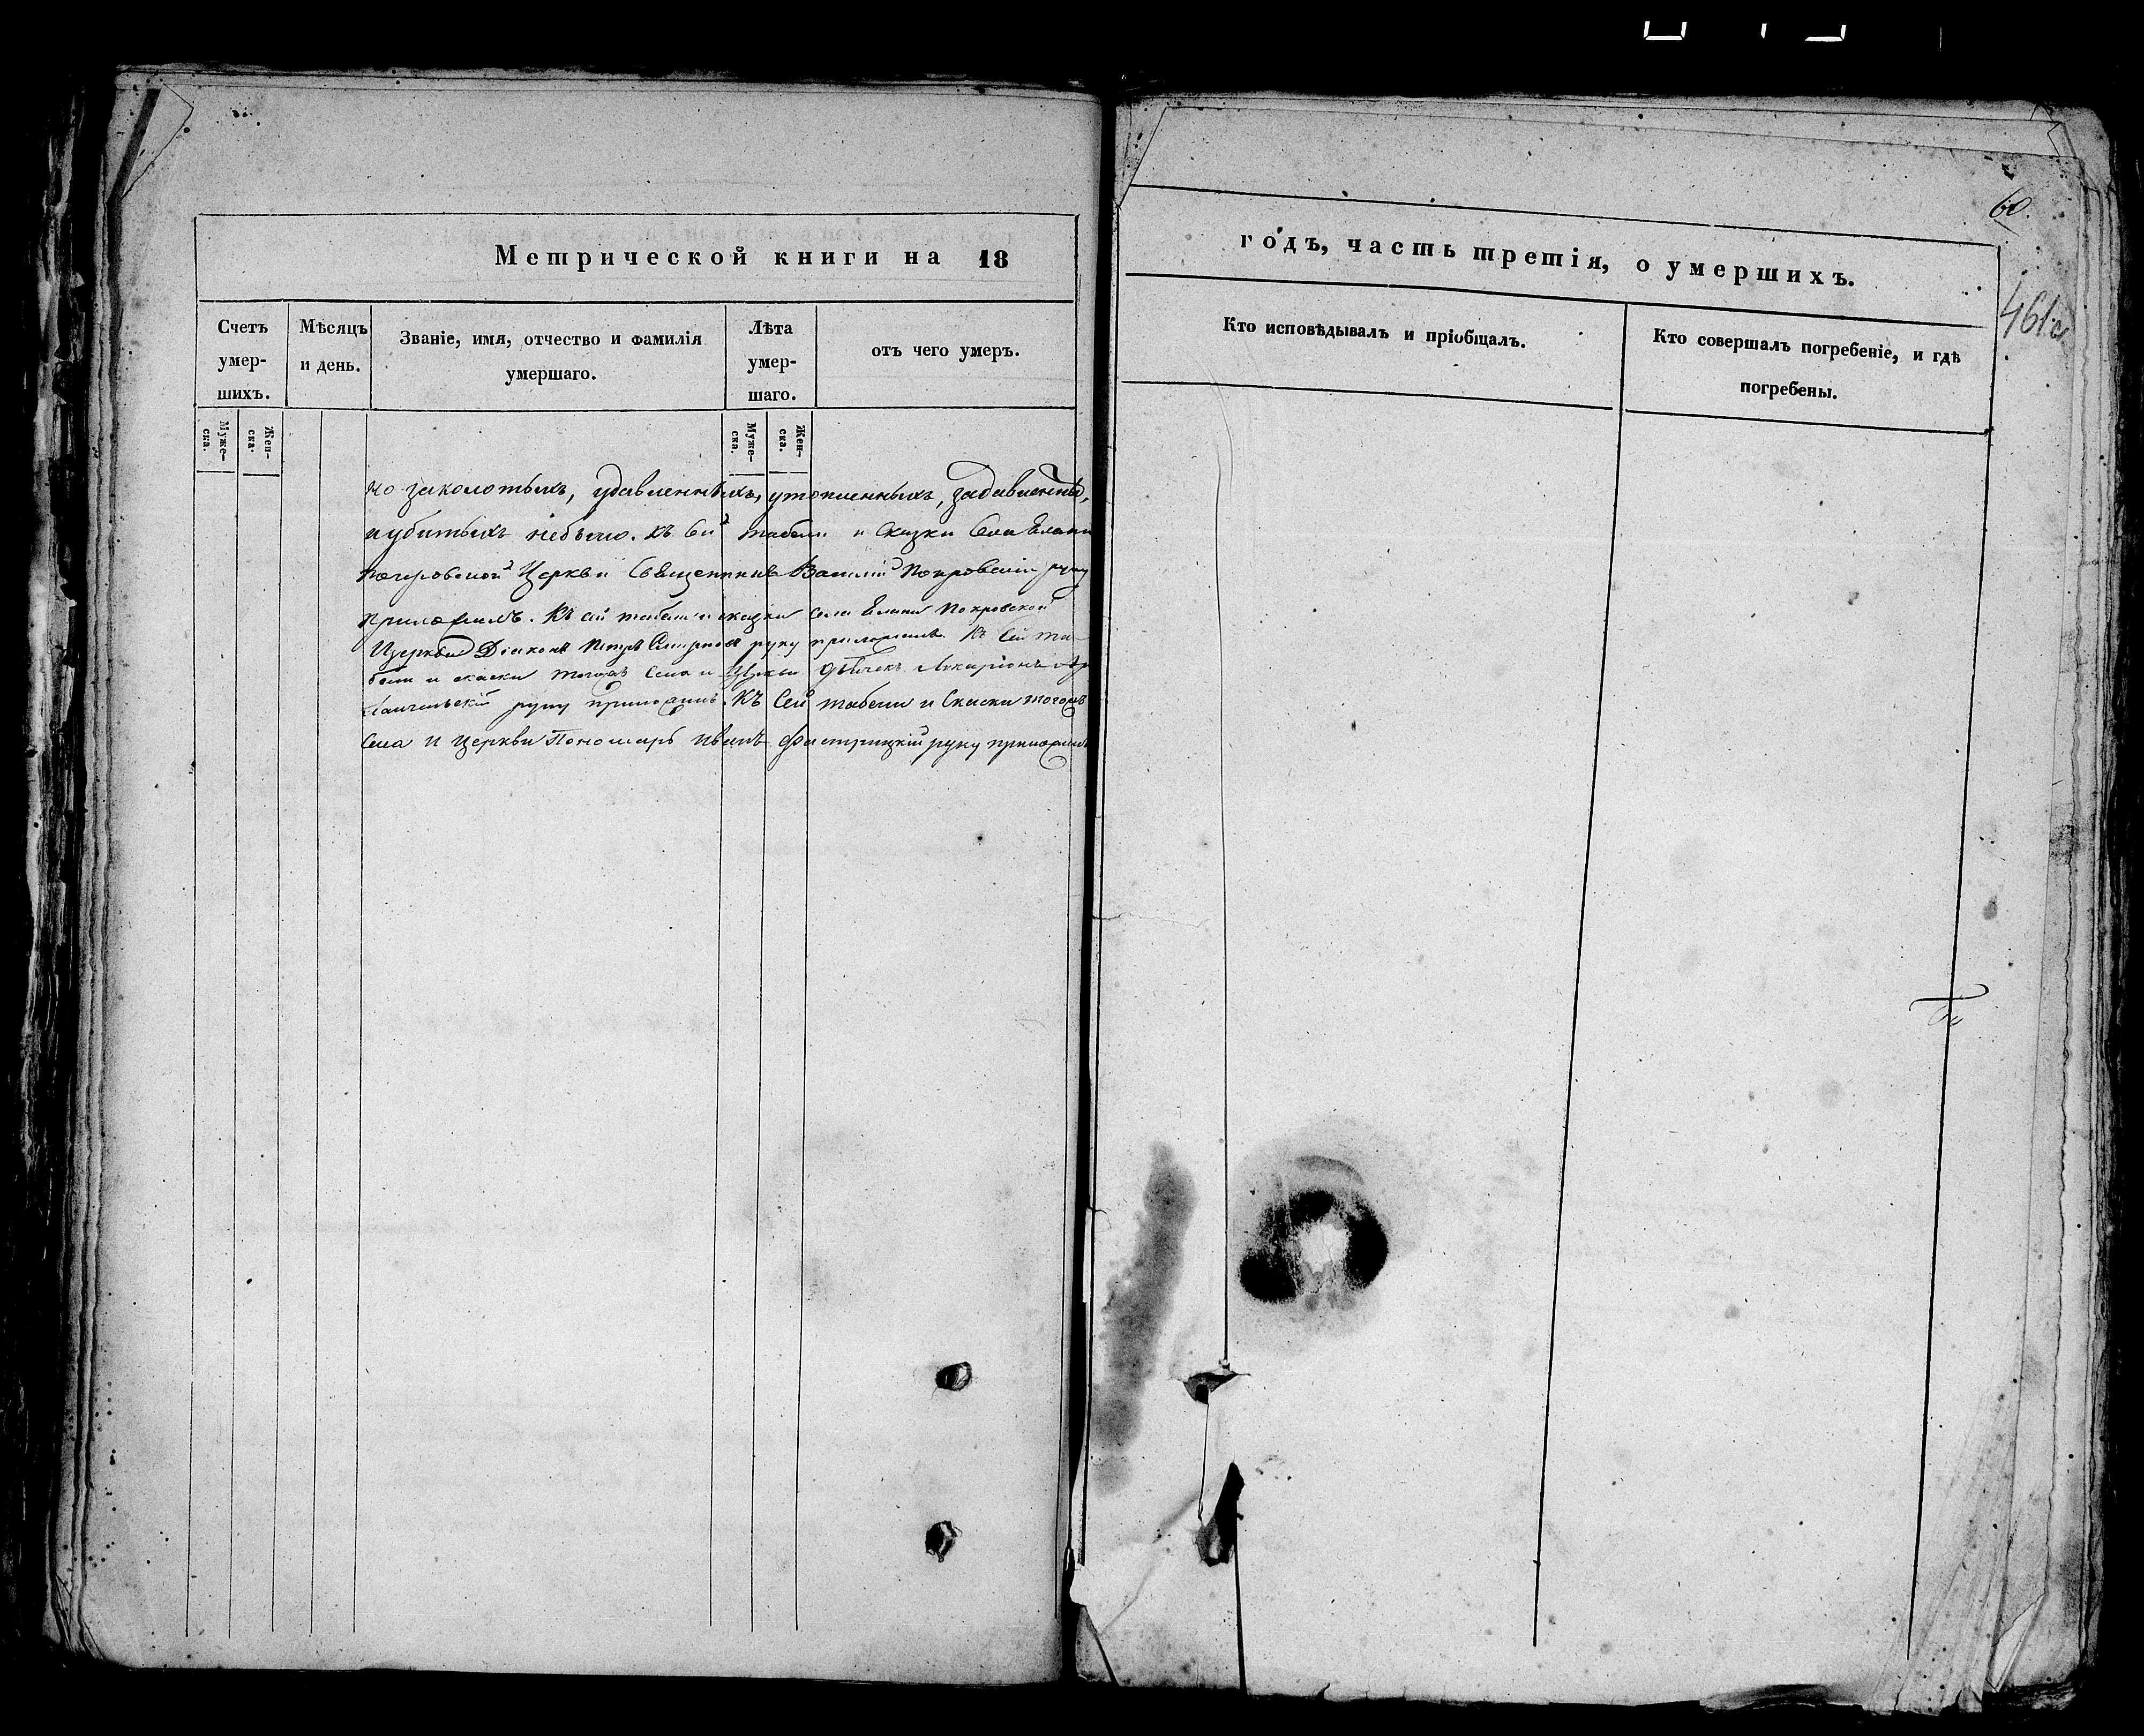 Метрической книги на 18
Счетъ умер-шихъ.
Мѣсяцъ и день.
Званіе, имя, отчество и фамилія умершаго.
Лѣта умер-шаго.
отъ чего умеръ.
Муже-ска.
Жен-ска.
Муже-ска.
Жен-ска.
но заколотыхъ, удавленныхъ, утопленныхъ, задавленны,
и убитыхъ небыло. Къ сей табели и Сказки Села Елани
покровской Церкви Священникъ Василій Покровскій руку
приложилъ. Къ сей табели и сказки села Елани Покровской
Церкви Діаконъ Петръ Смирнов руку приложилъ. Къ Сей та-
бели и скаски тогожъ Села и Церкви дьячекъ
руку приложилъ. Къ Сей табели и Скаски тогожъ
Села и Церкви Пономарь Иванъ руку приложилъ
60.
годъ, часть третія, о умершихъ.
461
Кто исповѣдывалъ и пріобщалъ.
Кто совершалъ погребеніе, и гдѣ погребены.